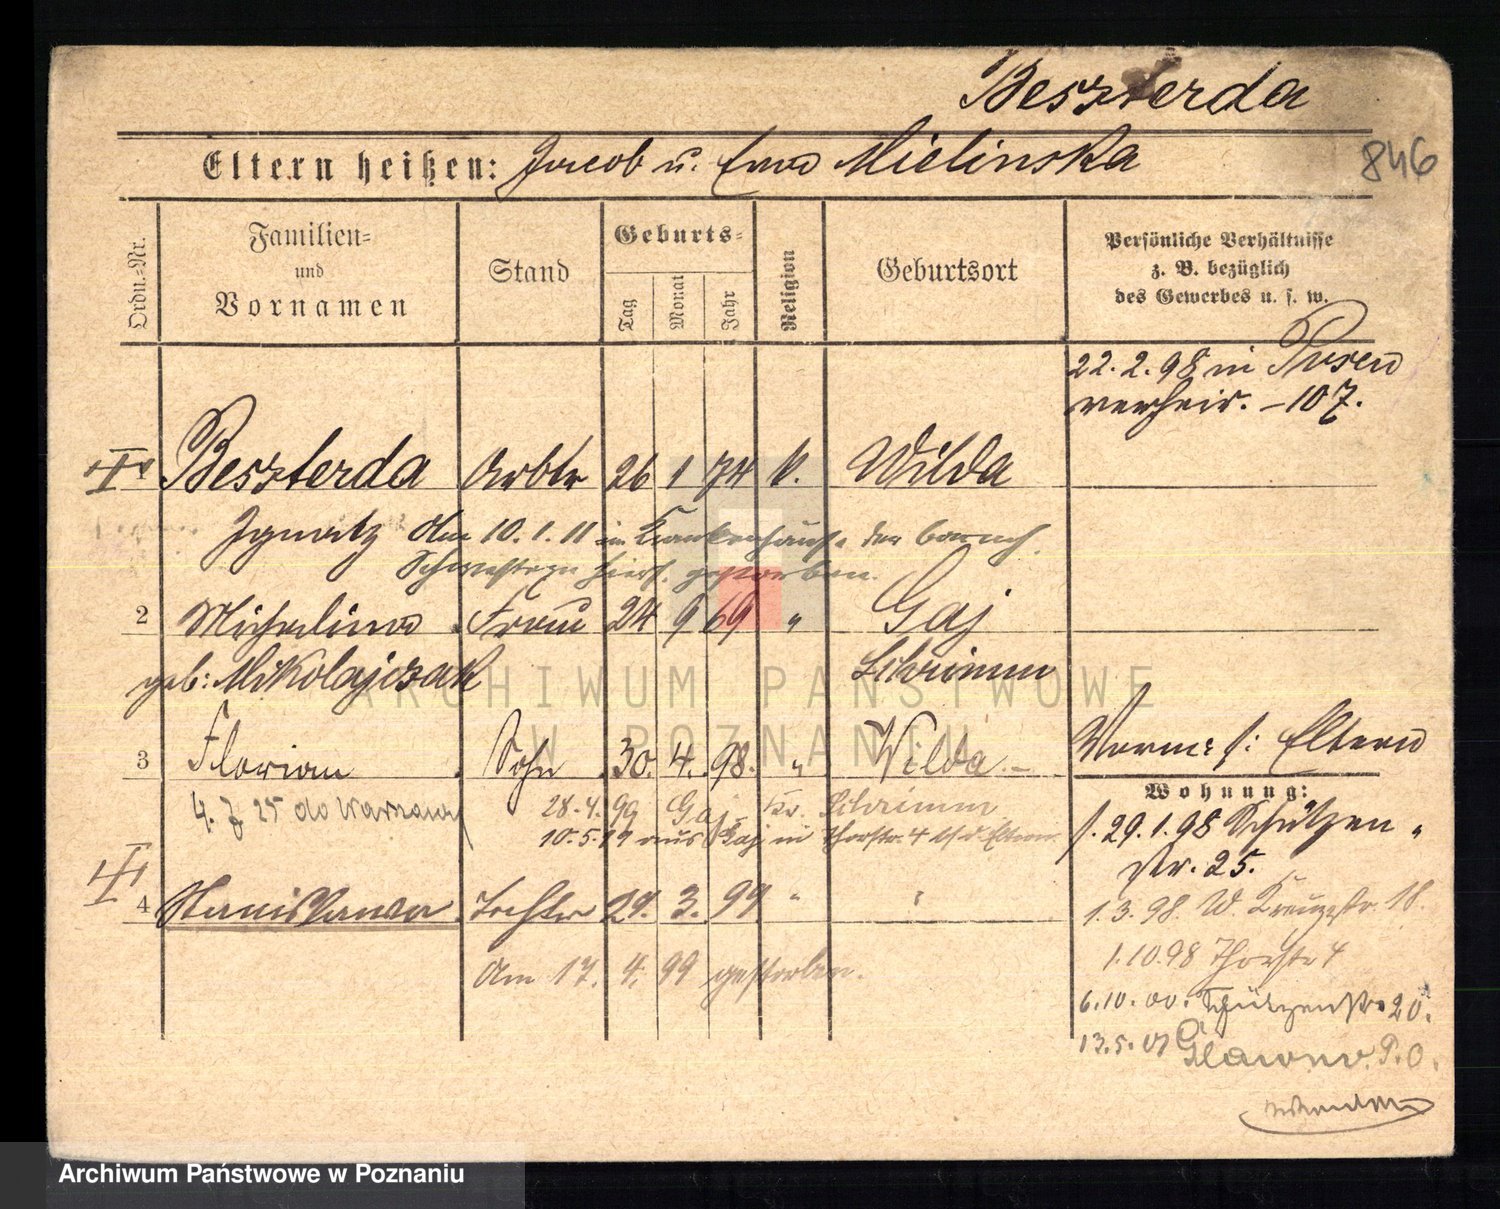 Beszterda
Eltern heißen: Jacob u. Eva Mielinska
846
Ordn.-Nr.
Familien- und Vornamen
Stand
Geburts-
Tag
Monat
Jahr
Religion
Geburtsort
Persönliche Verhältnisse
z. B. bezüglich
des Gewerbes u. s. w.
22. 2. 98 in Posen
verheir. – 107.
Beszterda Arbtr 26 1 74 k. Wilda
Ignatz Am 10. 1. 11 im Krankenhause der barmh.
Schwestern hiers. gestorben.
2 Michalina Frau 24 9 69 " Gaj
geb: Mikolajczak Schrimm
3 Florian Sohn 30. 4. 98. " Wilda. –
Vorm: s: Eltern
4. 7 25 do Warszawy
28. 4. 99 Gaj Kr. Schrimm
10. 5. 99 aus Gaj in Thorstr. 4 b/d Eltern
4 Stanislawa Tochter 29. 3. 99 " "
Am 17. 4. 99 gestorben.
Wohnung:
f. 29. 1. 98 Schützen "
str. 25.
1. 3. 98. W. Kreuzstr. 18.
1. 10. 98 Thorstr 4
6. 10. 00. Schützenstr. 20.
13. 5. 01 Glowno P. O.
wenden
ARCHIWUM PAŃSTWOWE
W POZNANIU
Archiwum Państwowe w Poznaniu